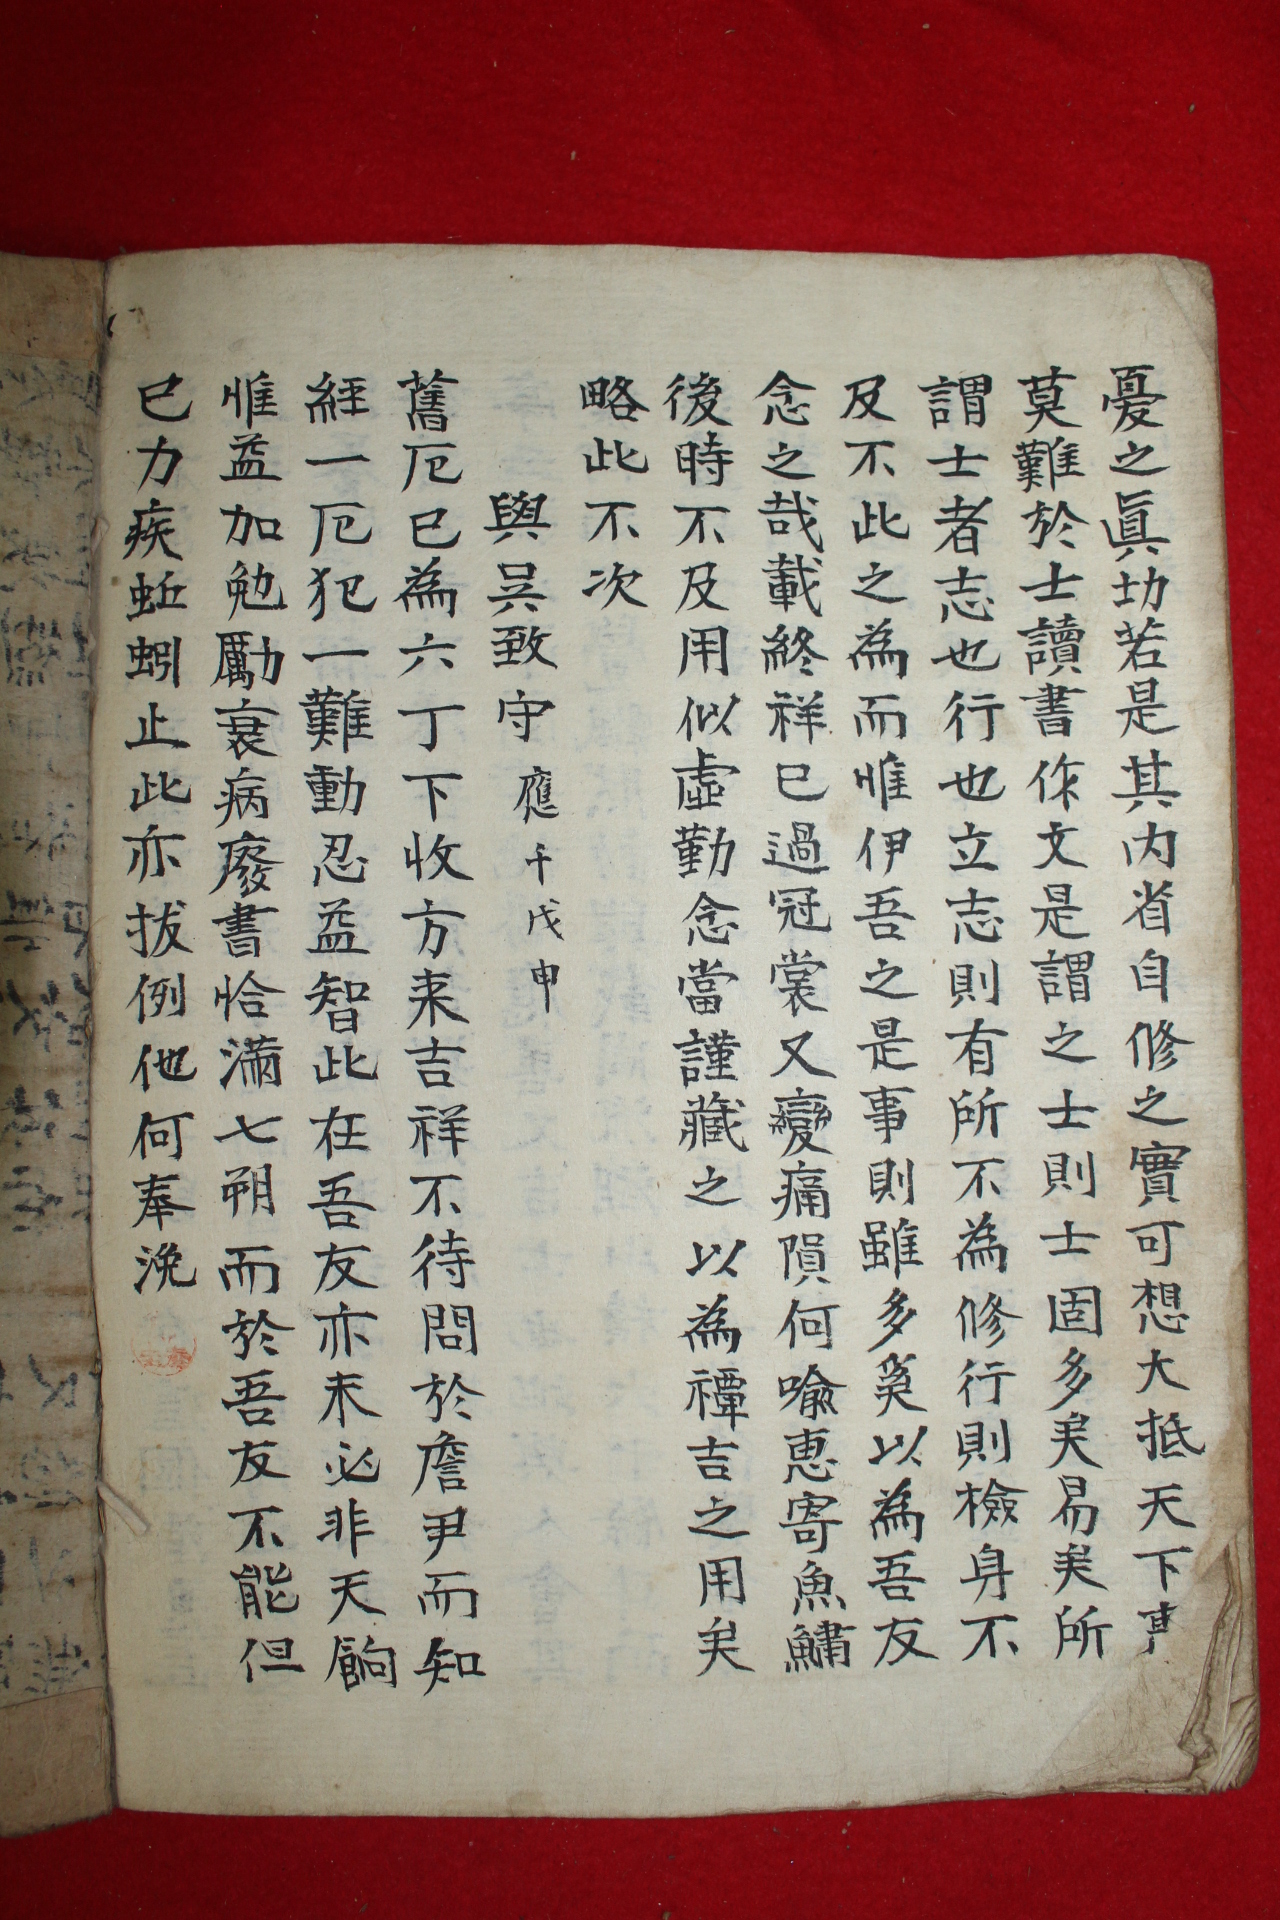 憂之眞功若是其内省自修之實可想大抵天下事
莫難於士讀書作文是謂之士則士固多矣易矣所
謂士者志也行也立志則有所不為修行則檢身不
及不此之為而惟伊吾之是事則雖多奚以為吾友
念之哉載終祥已過冠裳又變痛隕何喩惠寄魚鱐
後時不及用似虛勤念當謹藏之以為禫吉之用矣
略此不次
與吳致守應千戊申
舊厄已為六丁下收方来吉祥不待問於詹尹而知
經一厄犯一難動忍益智此在吾友亦未必非天餉
惟益加勉勵衰病廢書恰滿七朔而於吾友不能但
已力疾蚯蚓止此亦拔例他何奉浼